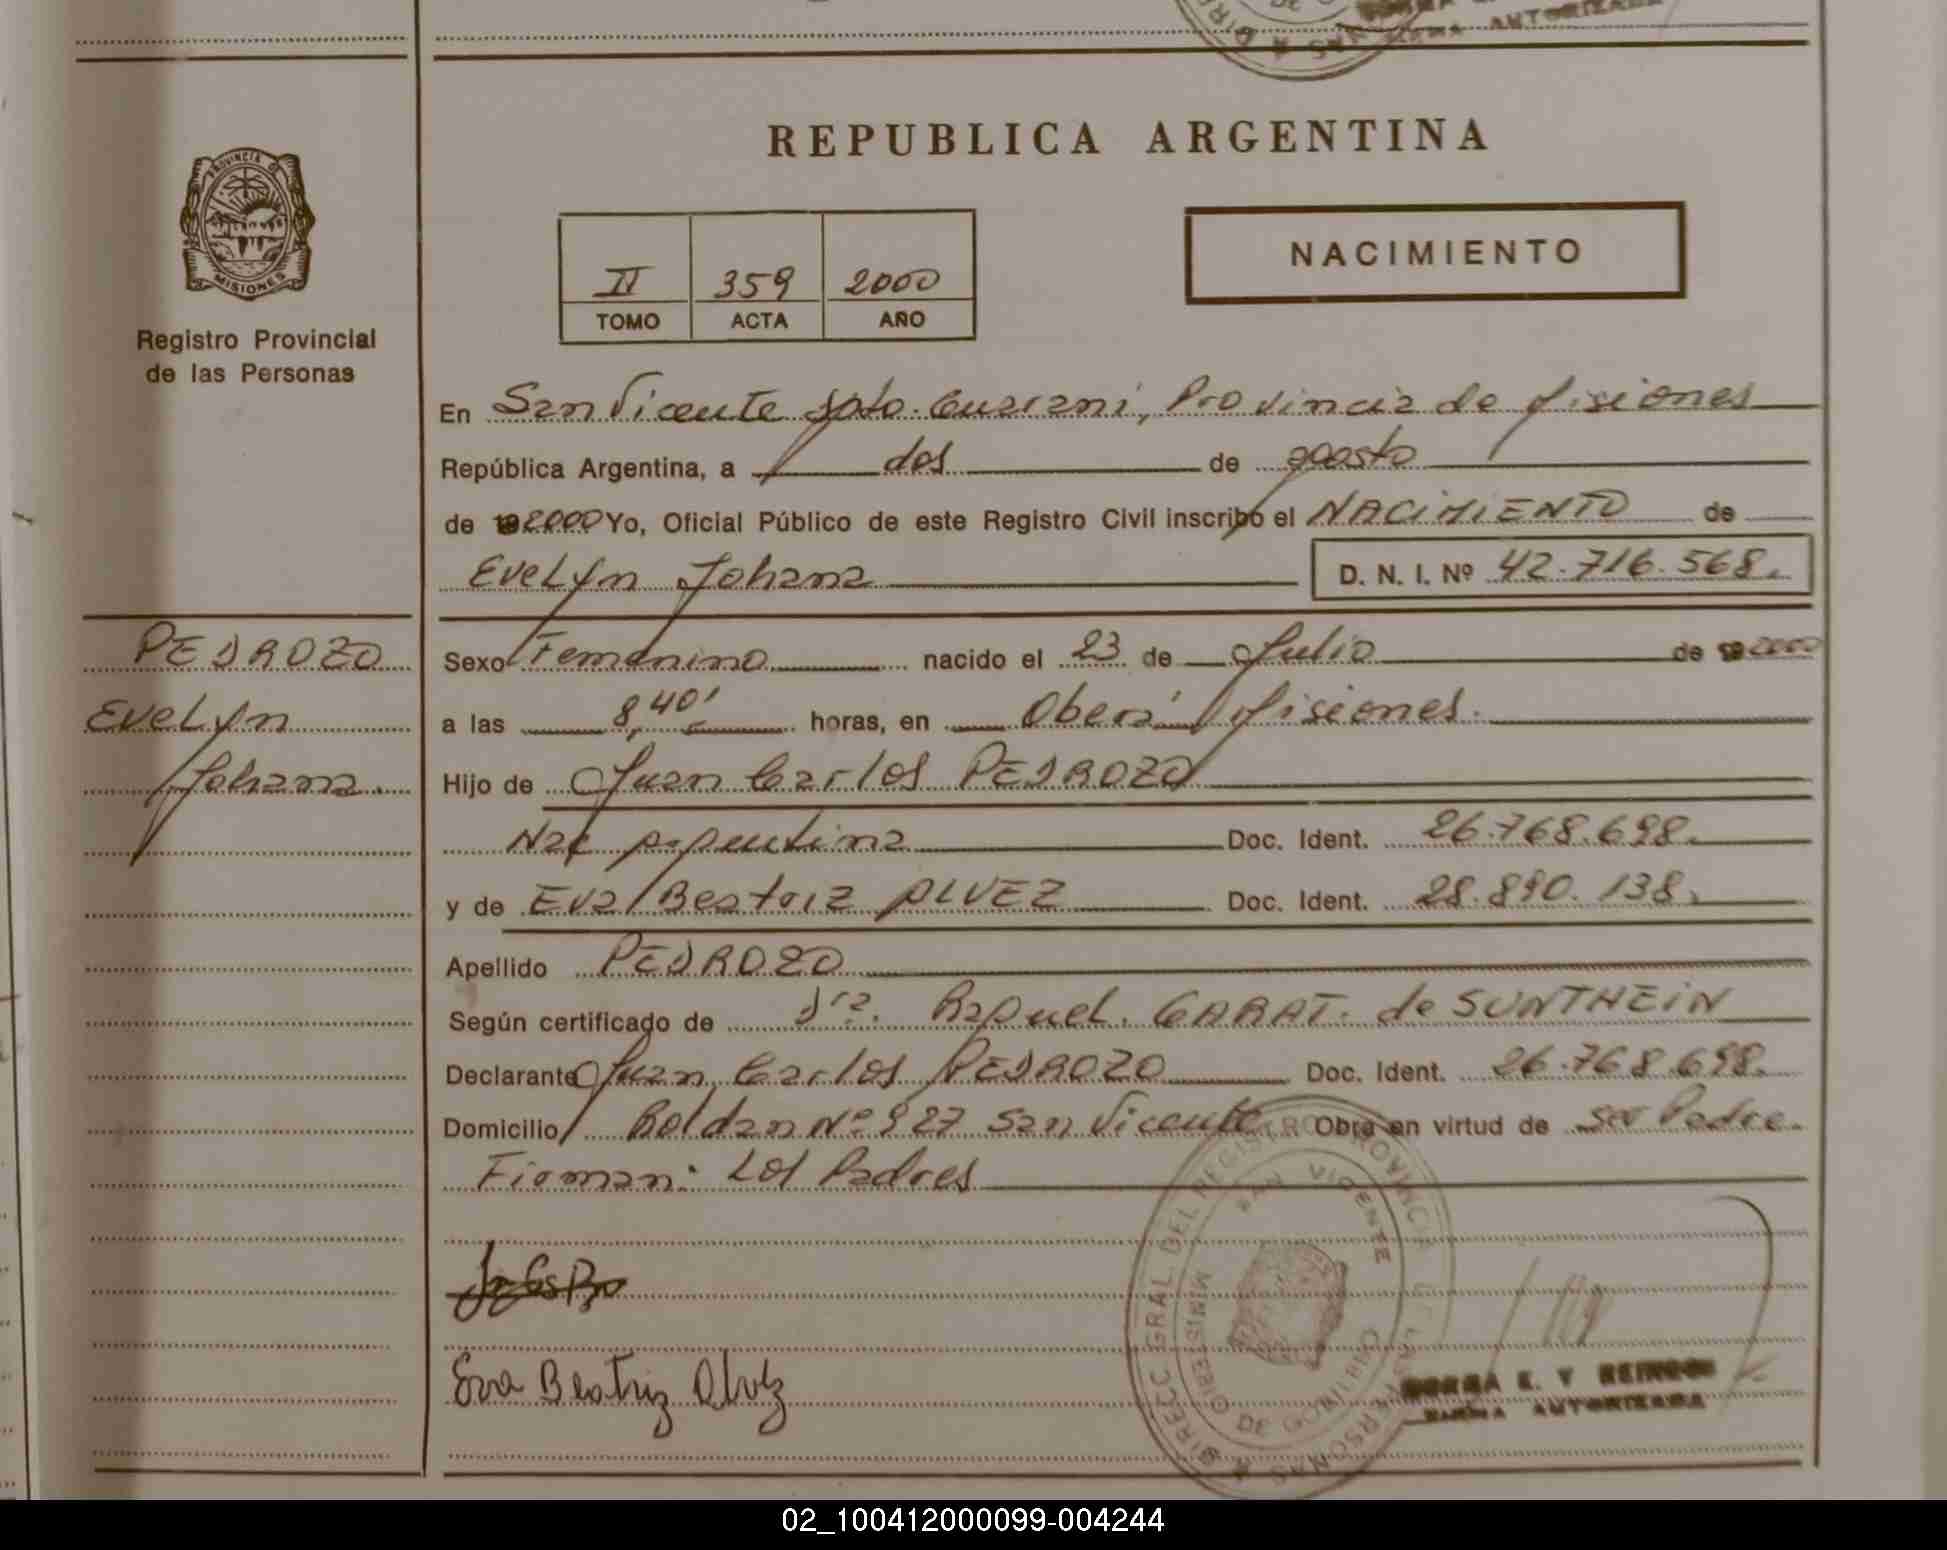 REPUBLICA ARGENTINA
PROVINCIA DE MISIONES
Registro Provincial
de las Personas
NACIMIENTO
II 359 2000
TOMO ACTA AÑO
En San Vicente Dpto. Guarani, Provincia de Misiones
República Argentina, a dos de agosto
de 2000 Yo, Oficial Público de este Registro Civil inscribo el NACIMIENTO de
Evelyn Johana D. N. I. Nº 42.716.568.
PEDROZO
Evelyn
Johana.
Sexo Femenino nacido el 23 de Julio de 2000
a las 8,40' horas, en Oberá Misiones.
Hijo de Juan Carlos PEDROZO
Nac argentina Doc. Ident. 26.768.698.
y de Eva Beatriz ALVEZ Doc. Ident. 28.890.138.
Apellido PEDROZO
Según certificado de Dra. Raquel. GARAT. de SUNTHEIN
Declarante Juan Carlos PEDROZO Doc. Ident. 26.768.698.
Domicilio Roldan Nº 927 San Vicente Obra en virtud de ser Padre.
Firman: Los Padres
Eva Beatriz Alvez
DIRECC GRAL DEL REGISTRO PROVINCIAL DE LAS PERSONAS
SAN VICENTE
MINISTERIO DE GOBIERNO
FIRMA AUTORIZADA
02_100412000099-004244